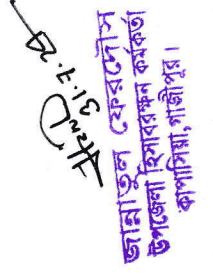 31.7.20
জান্নাতুল ফেরদৌস
উপজেলা হিসাবরক্ষন কর্মকর্তা
কাপাসিয়া, গাজীপুর।